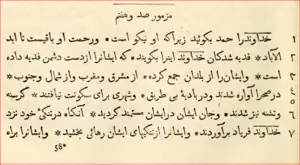 مزمور صد و هفتم
۱ خداوندرا حمد بگوئید زیرا که او نیکو است * ورحمت او باقیست تا ابد
۲ الآباد * فدیه شدکان خداوند اینرا بگویند * که ایشانرا ازدست دشمن فدیه داده
۳ است * وایشان‌را از بلدان جمع کرده * از مشرق ومغرب واز شمال وجنوب *
۴ درصحرا آواره شدند ودربادیهٔ بی طریق * وشهری برای سکونت نیافتند * کرسنه
۵
۶ وتشنه نیز شدند * وجان ایشان درایشان مستمند کردید * آنکاه درتنکئ خود نزد
۷ خداوند فریاد برآوردند * وایشانرا ازتنکیهای ایشان رهائی بخشید * وایشانرا براه
58*